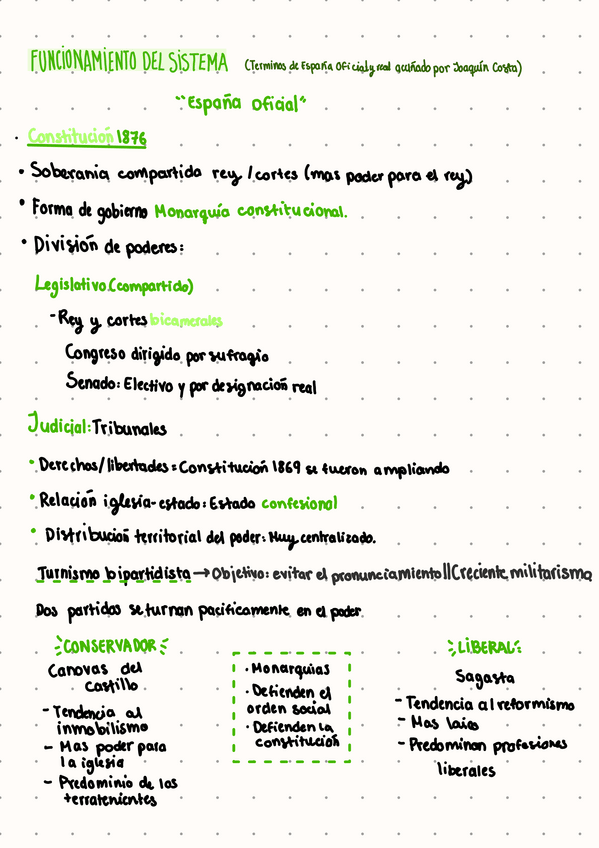 FUNCIONAMIENTO DEL SISTEMA (Terminos de España Oficial y real acuñado por Joaquín Costa)
"España oficial"
· Constitución 1876
• Soberania compartida rey / cortes (mas poder para el rey)
• Forma de gobierno Monarquía constitucional.
• División de poderes:
Legislativo (compartido)
- Rey y cortes bicamerales
Congreso dirigido por sufragio
Senado: Electivo y por designación real
Judicial: Tribunales
• Derechos/libertades = Constitución 1869 se fueron ampliando
• Relación iglesia-estado: Estado confesional
• Distribución territorial del poder: Muy centralizado.
Turnismo bipartidista → Objetivo: evitar el pronunciamiento || Creciente militarismo
Dos partidos se turnan pacificamente en el poder
CONSERVADOR
Canovas del
Castillo
- Tendencia al
inmobilismo
- Mas poder para
la iglesia
- Predominio de los
terratenientes
· Monarquias
· Defienden el
orden social
· Defienden la
constitución
LIBERAL
Sagasta
- Tendencia al reformismo
- Mas laico
- Predominan profesiones
liberales